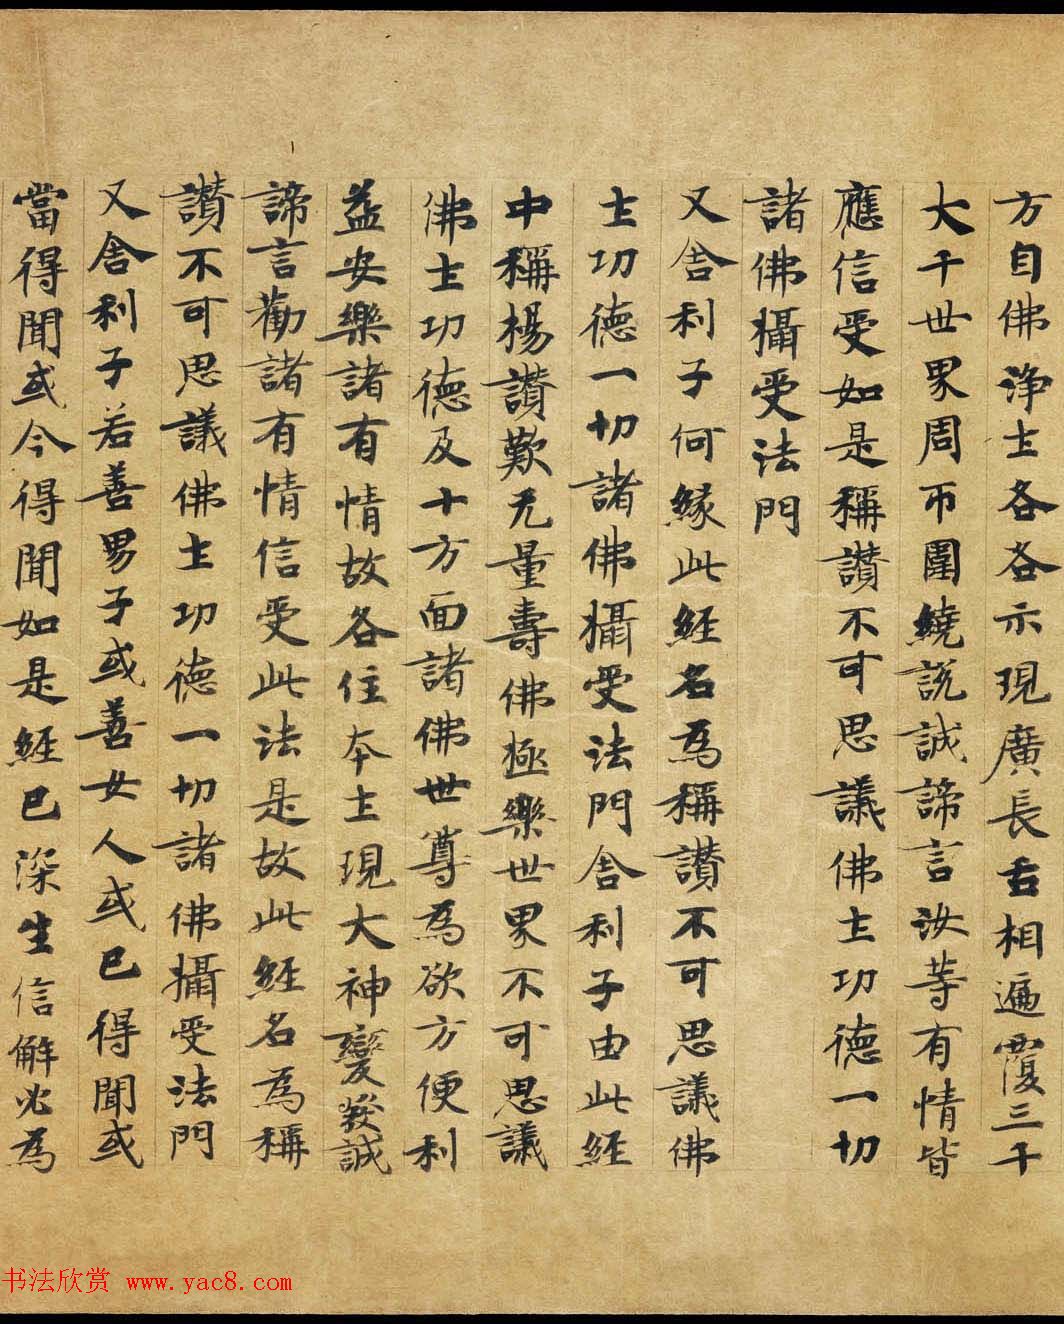 方自佛淨土各各示現廣長舌相遍覆三千
大千世界周帀圍繞說誠諦言汝等有情皆
應信受如是稱讚不可思議佛土功德一切
諸佛攝受法門
又舍利子何緣此經名為稱讚不可思議佛
土功德一切諸佛攝受法門舍利子由此經
中稱楊讚歎无量壽佛極樂世界不可思議
佛土功德及十方面諸佛世尊為欲方便利
益安樂諸有情故各住本土現大神變發誠
諦言勸諸有情信受此法是故此經名為稱
讚不可思議佛土功德一切諸佛攝受法門
又舍利子若善男子或善女人或已得聞或
當得聞或今得聞如是經已深生信解必為
书法欣赏 www.yac8.com